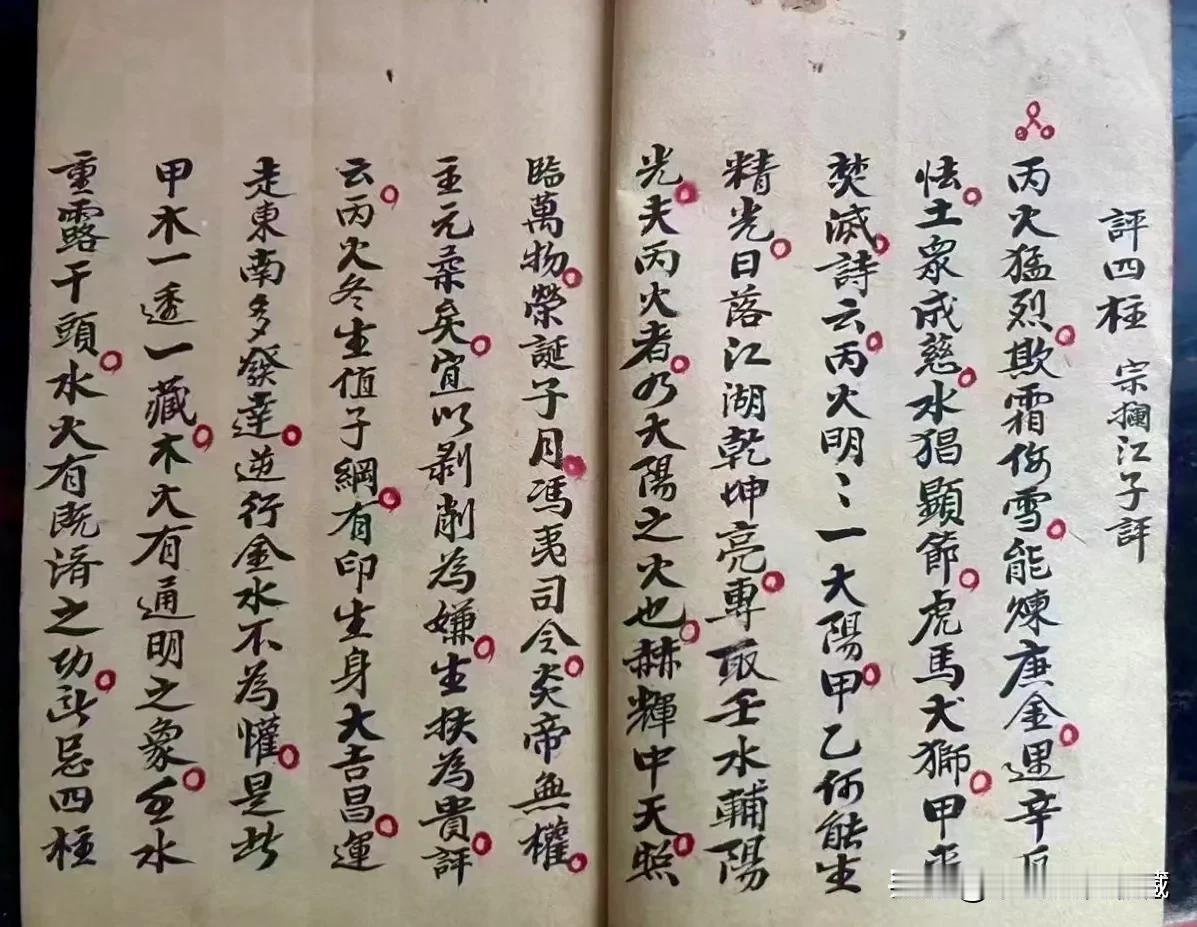 評四柱 宗攔江子評
丙火猛烈欺霜侮雪能煉庚金遇辛反
怯土衆成慈水猖顯節虎馬犬獅甲
焚滅詩云丙火明〻一大陽甲乙何能生
精光日落江湖乾坤亮專取壬水輔陽
光夫丙火者乃大陽之火也赫輝中天照
臨萬物榮誕子月馮夷司令炎帝無權
主元柔矣宜以剥削為嫌生扶為貴評
云丙火冬生值子綱有印生身大吉昌運
走東南多發達逆行金水不為懽是此
甲木一透一藏木火有通明之象壬水
重露干頭水火有既済之功所忌四柱